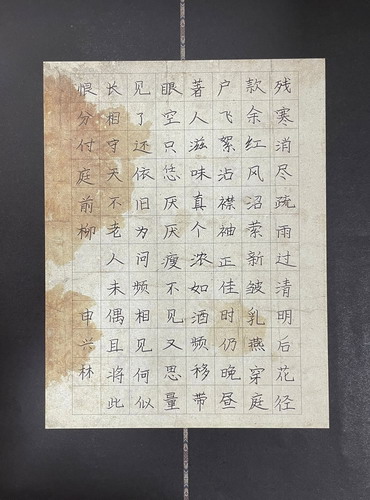 残寒消尽疏雨过清明后花径
款余红风沼萦新皱乳燕穿庭
户飞絮沾襟袖正佳时仍晚昼
著人滋味真个浓如酒频移带
眼空只恁厌厌瘦不见又思量
见了还依旧为问频相见何似
长相守天不老人未偶且将此
恨分付庭前柳 申兴林